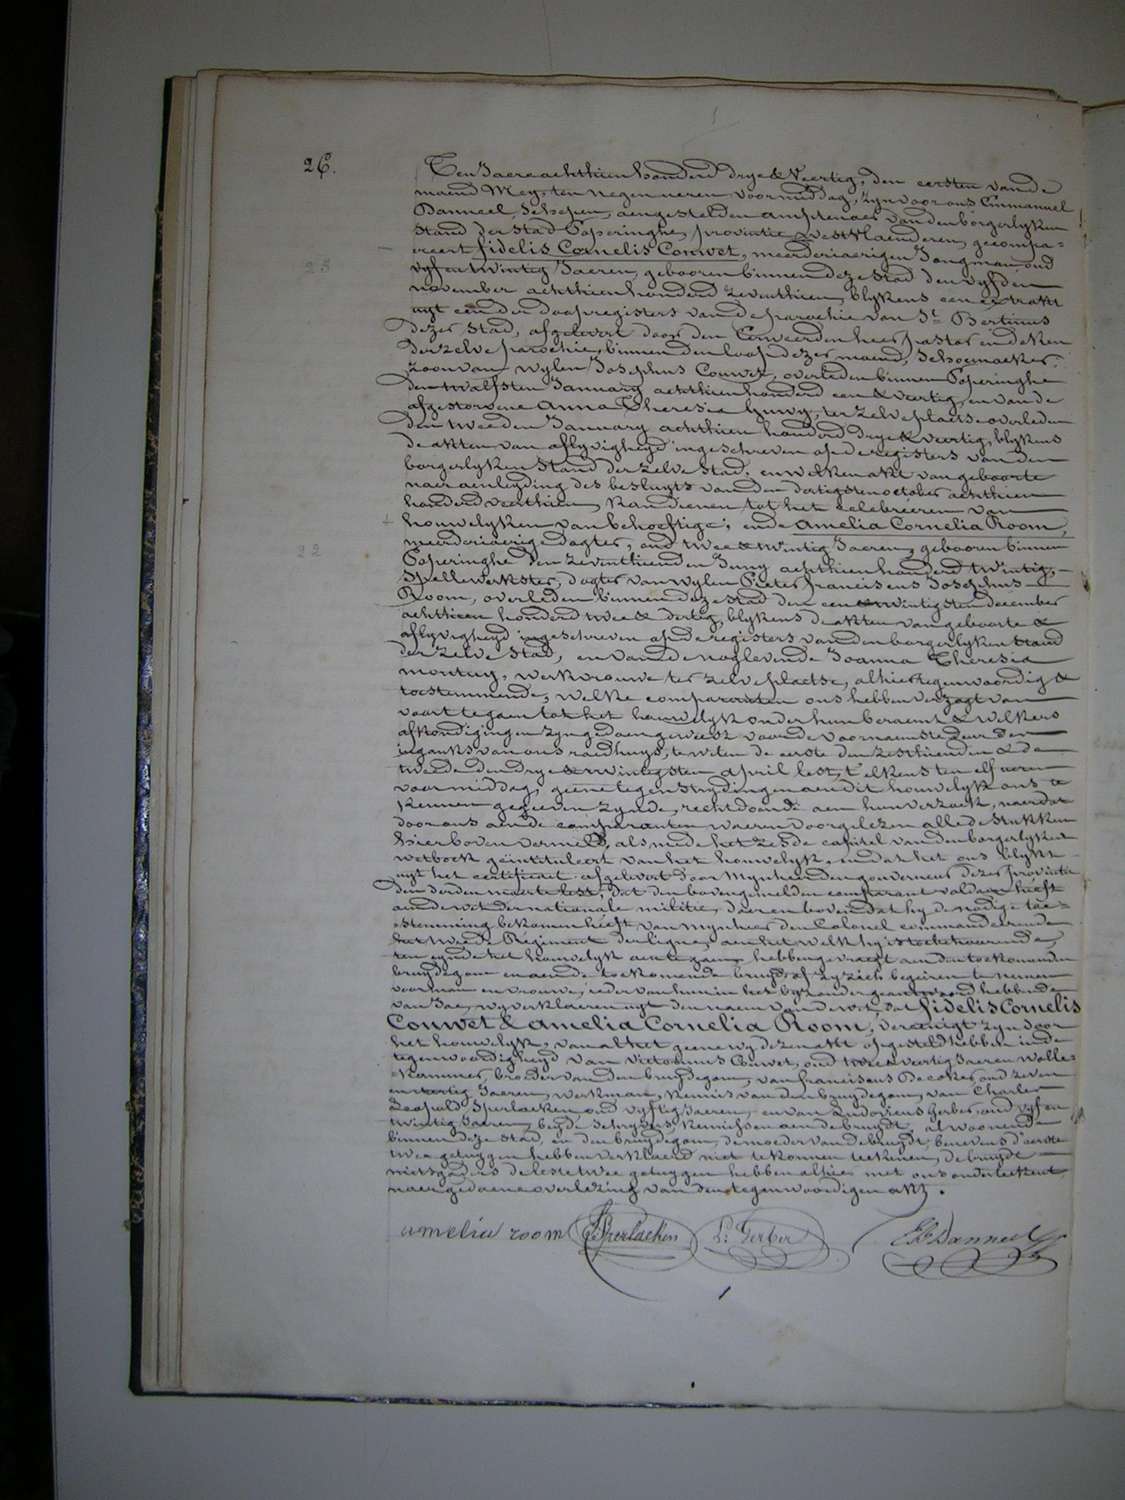 26.
Ten Jaere achthien honderd drye & Veertig, den eersten van de
maend Mey, ten negen ueren voormiddag, zyn voor ons Emmanuel
Banneel, Schepen, aengestelden amptenaer van den borgerlyken
stand der Stad Poperinghe, provintie westVlaenderen, gecompa=
reert fidelis Cornelis Couwet, meerderjaerigen Jongman oud
25
vyf en twintig Jaeren, gebooren binnen deze Stad den vyfden
november achthien honderd zeventhien, blykens een extrakt
uyt een den doopregisters van de parochie van St. Bertinus
dezer Stad, afgelevert door den Eerweerden heer pastor en deken
der zelve parochie, binnen den loop dezer maend, Schoenmaeker,
zoon van wylen Josephus Couwet, overleden binnen Poperinghe
den twalfsten January achthien honderd een & veertig, en van de
afgestorvene Anna Theresia, ter zelve plaetse overleden
den tweeden January achthien honderd drye & veertig, blykens
de akten van aflyvigheyd ingeschreven op de registers van den
borgerlyken Stand der zelve Stad, en welken akt van geboorte
naer aenleyding des besluyts van den dertigsten october achthien
honderd veerthien, kan dienen tot het celebreeren van
houwelyken van behoeftige; ende Amelia Cornelia Room,
meerderjaerige dogter, oud twee & twintig Jaeren, gebooren binnen
22
Poperinghe den zeventhienden Juny achthien honderd twintig,
Spellewerkster, dogter van wylen Pieter franciscus Josephus
Room, overleden binnen deze Stad den een & twintigsten december
achthien honderd twee & dertig, blykens de akten van geboorte &
aflyvigheyd ingeschreven op de registers van den borgerlyken Stand
der zelve Stad, en van de noglevende Joanna Theresia
, werkvrouwe ter zelve plaetse, alhier tegenwoordig &
toestemmende, welke comparanten ons hebben verzogt van
voort te gaen tot het houwelyk onder hun beraemt & welkers
afkondigingen zyn gedaen geweest voor de voornaemste deur den
inganks van ons raedhuys, te weten de eerste den zesthienden & de
tweede den drye & twintigsten April lest, t'elkens ten elf ueren
voormiddag, geene tegenstrydingen aen dit houwelyk ons te
kennen gegeven zynde, recht doende aen hun verzoek, naer dat
door ons aen de comparanten waeren voorgelezen alle de Stukken
hierboven vermeld, als mede het zesde capitel van den borgerlyken
wetboek geïntituleert van het houwelyk, en dat het ons blykt
uyt het certificaet afgelevert door Mynheer den gouverneur dezer provintie
den derden maerte lest, dat den bovengemelden comparant voldaen heeft
aen de wet der nationale militie, daer en boven dat hy de nodige toe=
stemming bekomen heeft van Mynheer den Colonel commandeerende
het tweede Regiment der ligne, aen het welk hy is toebehoorende,
ten eynde het houwelyk aen te gaen, hebben gevraegt aen den toekomenden
bruydegom en aen de toekomende bruyd, of zy zich begeiren te nemen
voor man en vrouwe; ieder van hun in het byzonder geantwoord hebbende
van Jae, wy verklaeren uyt den naem van de wet, dat fidelis Cornelis
Couwet & Amelia Cornelia Room, vereenigt zyn door
het houwelyk, van al het geene wy dezen akt opgesteld hebben in de
tegenwoordigheyd van Victorinus Couwet, oud twee & veertig Jaeren wolle=
kammer, broeder van den bruydegom, van franciscus Decoker oud zeven
en veertig Jaeren, werkman, kennis van den bruydegom, van Charles
Leopold Sperlaeken oud vyftig Jaeren, en van Ludovicus Gerber, oud vyf en
twintig Jaeren, beyde Schryvers, kennissen aen de bruydt, al woonende
binnen deze Stad, en den bruydegom, de moeder van de bruydt, benevens d'eerste
twee getuygen hebben verklaerd niet te konnen teekenen, de bruydt
mitsgaders de leste twee getuygen hebben alhier met ons onderteekent
naer gedaene overlezing van den tegenwoordigen akt.
amelia room Sperlaeken L: Gerber E Banneel